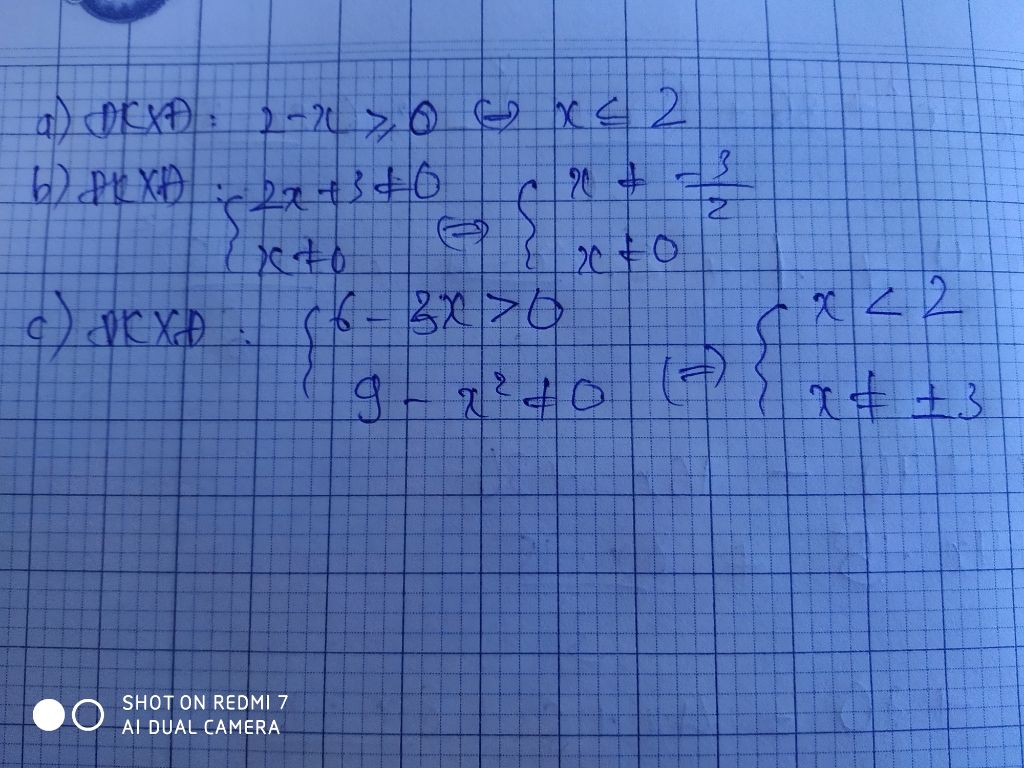 a) ĐKXĐ : 2-x ≥ 0 ⇔ x ≤ 2
b) ĐKXĐ : { 2x + 3 ≠ 0 ⇔ { x ≠ -3/2
x ≠ 0 x ≠ 0
c) ĐKXĐ : { 6 - 3x > 0 ⇔ { x < 2
9 - x² ≠ 0 x ≠ ±3
SHOT ON REDMI 7
AI DUAL CAMERA